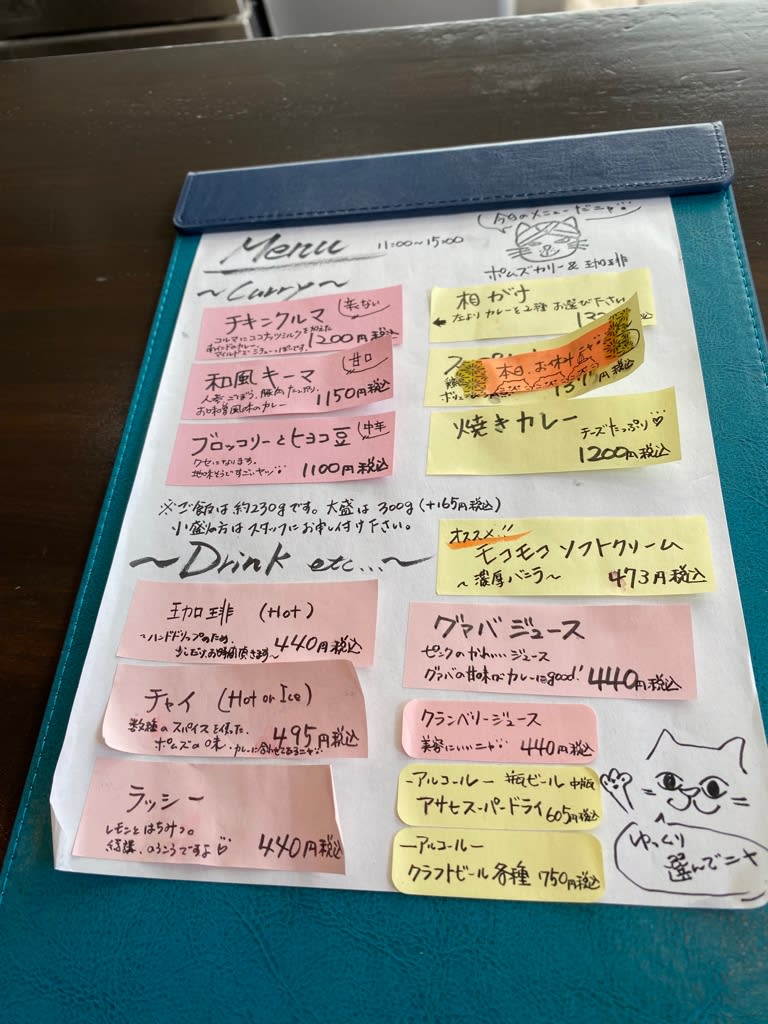 Menu 11:00~15:00
今日のメニューだニャ
ポムズカリー&珈琲
~Curry~
チキンクルマ 辛くない
コルマにココナッツミルクを加えた
1200円税込
和風キーマ 甘口
お味噌風味のカレー
1150円税込
ブロッコリーとヒヨコ豆 中辛
クセになります。
地味そうですごいヤツ
1100円税込
相がけ
左よりカレーを2種 お選び下さい
本日、お休み
円税込
焼きカレー
チーズたっぷり♡
1200円税込
※ご飯は約230gです。大盛は300g(+165円税込)
小盛りの方はスタッフにお申し付け下さい。
オススメ!!
モコモコソフトクリーム
~濃厚バニラ~ 473円税込
~Drink etc...~
珈琲 (Hot)
~ハンドドリップのため、
少しだけお時間頂きます~
440円税込
チャイ (Hot or Ice)
数種のスパイスを使った、
ポムズの味・カレーに合わせてるニャ
495円税込
ラッシー
レモンとはちみつ。
結構、のうこうですよ♡
440円税込
グァバジュース
ピンクのかわいいジュース
グァバの甘味がカレーにgood!
440円税込
クランベリージュース
美容にいいニャ 440円税込
-アルコール- 瓶ビール 中瓶
アサヒスーパードライ 605円税込
-アルコール-
クラフトビール各種 750円税込
ゆっくり
選んでニャ